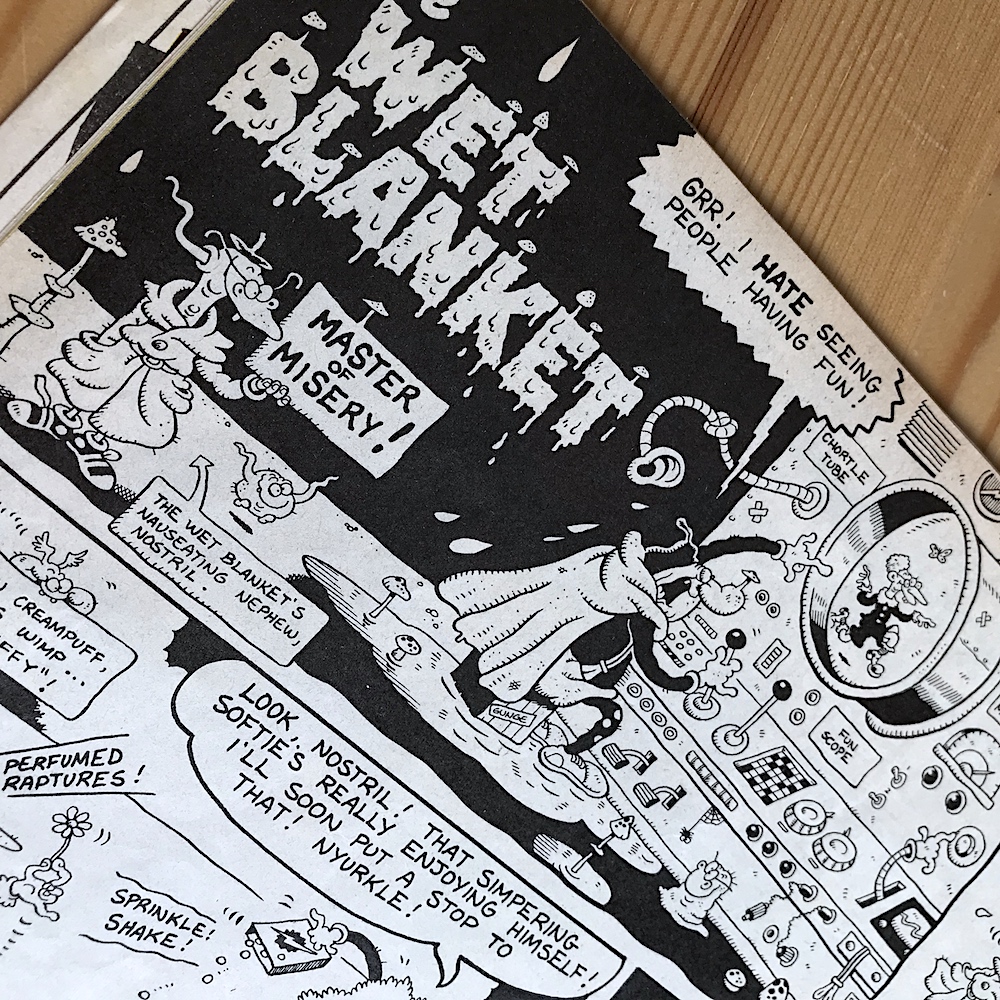 WET
BLANKET
GRR! I HATE SEEING
PEOPLE HAVING FUN!
MASTER
OF
MISERY!
CHORTLE
TUBE
THE WET BLANKET'S
NAUSEATING NEPHEW,
NOSTRIL.
GUNGE
FUN
SCOPE
CREAMPUFF,
WIMP...
FFY"!
LOOK, NOSTRIL! THAT SIMPERING
SOFTIE'S REALLY ENJOYING HIMSELF!
I'LL SOON PUT A STOP TO
THAT! NYURKLE!
PERFUMED
RAPTURES!
SPRINKLE!
SHAKE!